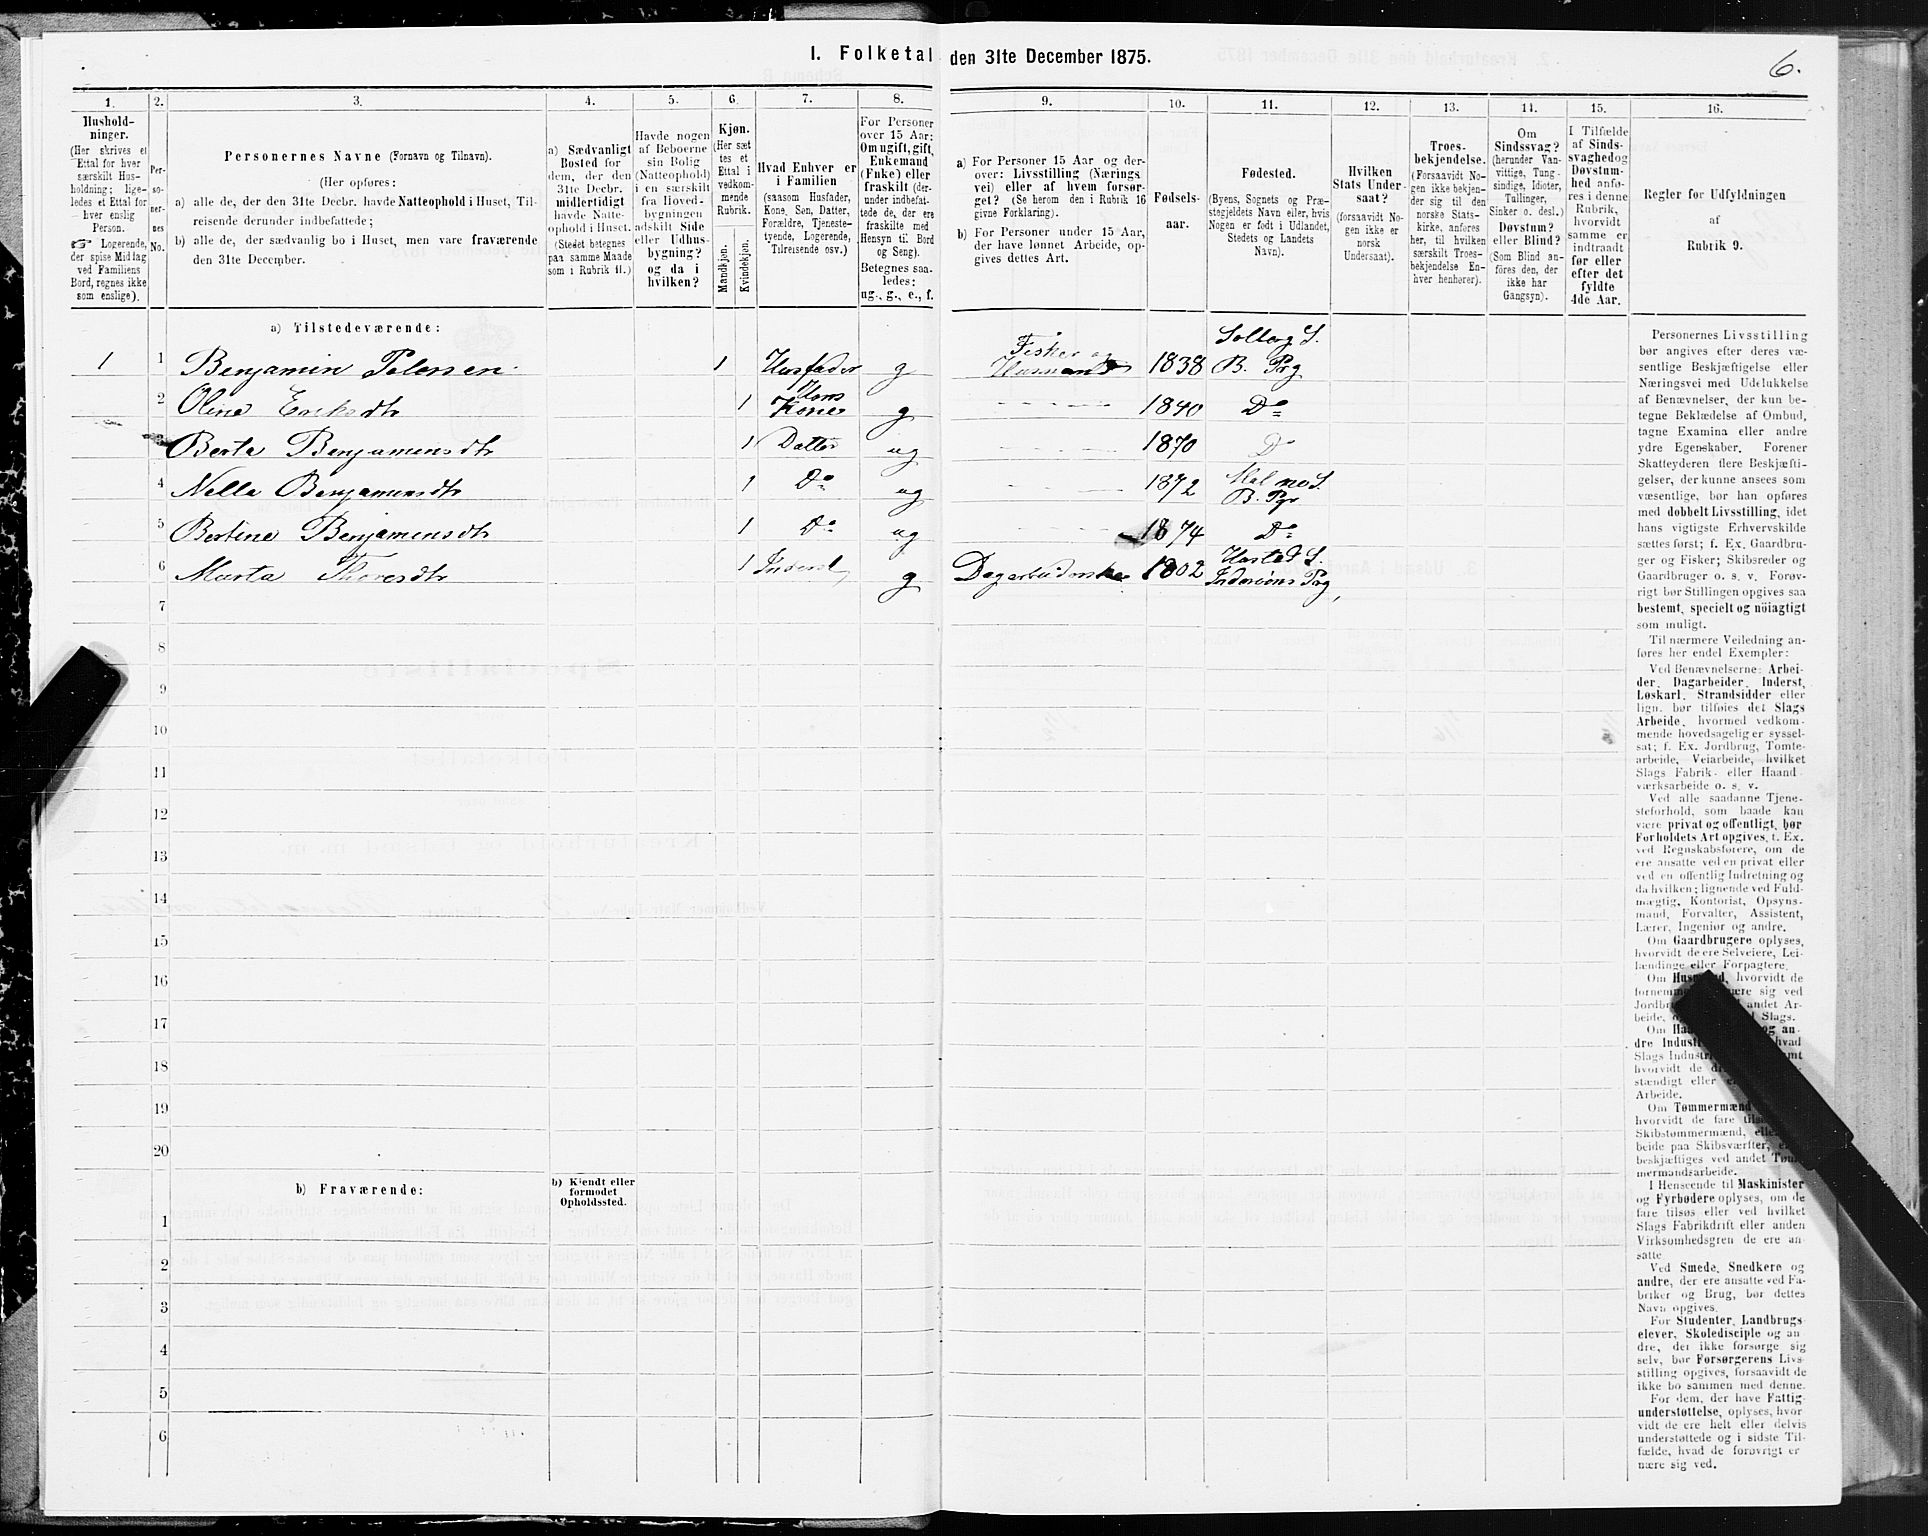 I. Folketal den 31te December 1875.
6.
1.
Hushold-
ninger.
(Her skrives et
Ettal for hver
særskilt Hus-
holdning; lige-
ledes et Ettal for
hver enslig
Person.
☞ Logerende,
der spise Middag
ved Familiens
Bord, regnes ikke
som enslige).
2.
Per-
so-
ner-
nes
No.
3.
Personernes Navne (Fornavn og Tilnavn).
(Her opføres:
a) alle de, der den 31te Decbr. havde Natteophold i Huset, Til-
reisende derunder indbefattede;
b) alle de, der sædvanlig bo i Huset, men vare fraværende
den 31te December.
4.
a) Sædvanligt
Bosted for
dem, der den
31te Decbr.
midlertidigt
havde Natte-
ophold i Huset.
(Stedet betegnes
paa samme Maade
som i Rubrik 11.)
5.
Havde nogen
af Beboerne
sin Bolig
(Natteophold)
i en særskilt
fra Hoved-
bygningen
adskilt Side
eller Udhus-
bygning?
og da i
hvilken?
6.
Kjøn.
(Her sæt
tes et
Ettal i
vedkom-
mende
Rubrik.
Mandkjøn.
Kvindekjøn.
7.
Hvad Enhver er
i Familien
(saasom Husfader,
Kone, Søn, Datter,
Forældre, Tjeneste-
tyende, Logerende,
Tilreisende osv.)
8.
For Personer
over 15 Aar:
Om ugift, gift,
Enkemand
(Enke) eller
fraskilt (der-
under indbefat-
tede de, der ere
fraskilte med
Hensyn til Bord
og Seng).
Betegnes saa-
ledes:
ug., g., e., f.
9.
a) For Personer 15 Aar og der-
over: Livsstilling (Nærings
vei) eller af hvem forsør-
get? (Se herom den i Rubrik 16
givne Forklaring).
b) For Personer under 15 Aar,
der have lønnet Arbeide, op-
gives dettes Art.
10.
Fødsels-
aar.
11.
Fødested.
(Byens, Sognets og Præ-
stegjeldets Navn eller, hvis
Nogen er født i Udlandet,
Stedets og Landets
Navn).
12.
Hvilken
Stats Under-
saat?
(forsaavidt No-
gen ikke er
norsk
Undersaat).
13.
Troes-
bekjendelse.
(Forsaavidt No-
gen ikke bekjen-
der sig til den
norske Stats-
kirke, anføres
her, til hvilken
særskilt Troes-
bekjendelse En-
hver henhører).
14.
Om
Sindssvag?
(herunder Van-
vittige, Tung-
sindige, Idioter,
Tullinger,
Sinker o. desl.)
Døvstum?
eller Blind?
(Som Blind an-
føres den, der
ikke har
Gangsyn).
15.
I Tilfælde
af Sinds-
svaghed og
Døvstum-
hed anfø-
res i denne
Rubrik,
hvorvidt
samme er
indtraadt
før eller
efter det
fyldte
4de Aar.
16.
Regler for Udfyldningen
af
Rubrik 9.
a) Tilstedeværende:
1 1 Benjamin Pedersen 1 Husfader g Fisker og Husmand 1838 Solberg S. B. Prg
2 Oline Eriksdtr 1 Hans Kone g 1840 Do
3 Berta Benjaminsdtr 1 Datter ug 1870 Do
4 Nella Benjaminsdtr 1 Do ug 1872 Malmo S. B. Pgr
5 Bertine Benjaminsdtr 1 Do ug 1874 Do
6 Marta Thoresdtr 1 Inderst g Dagarbeiderske 1802 Hustad S. Inderøens Prg,
7
8
9
10
11
12
13
14
15
16
17
18
19
20
b) Fraværende:
b) Kjendt eller
formodet
Opholdssted.
1
2
3
4
5
6
Personernes Livsstilling
bør angives efter deres væ-
sentlige Beskjæftigelse eller
Næringsvei med Udelukkelse
af Benævnelser, der kun be-
tegne Beklædelse af Ombud,
tagne Examina eller andre
ydre Egenskaber. Forener
Skatteyderen flere Beskjæfti-
gelser, der kunne ansees som
væsentlige, bør han opføres
med dobbelt Livsstilling, idet
hans vigtigste Erhvervskilde
sættes først; f. Ex. Gaardbru-
ger og Fisker; Skibsreder og
Gaardbruger o. s. v. Forøv-
rigt bør Stillingen opgives saa
bestemt, specielt og nöiagtigt
som muligt.
Til nærmere Veiledning an-
føres her endel Exempler:
Ved Benævnelserne: Arbei-
der, Dagarbeider, Inderst,
Løskarl, Strandsidder eller
lign. bør tilføies det Slags
Arbeide, hvormed vedkom-
mende hovedsagelig er syssel-
sat; f. Ex. Jordbrug, Tomte-
arbeide, Veiarbeide, hvilket
Slags Fabrik- eller Haand-
værksarbeide o. s. v.
Ved alle saadanne Tjene-
steforhold, som baade kan
være privat og offentligt, bør
Forholdets Art opgives, f. Ex.
ved Regnskabsførere, om de
ere ansatte ved en privat eller
ved en offentlig Indretning og
da hvilken; lignende ved Fuld-
mægtig, Kontorist, Opsyns-
mand, Forvalter, Assistent,
Lærer, Ingeniør og andre.
Om Gaardbrugere oplyses,
hvorvidt de ere Selveiere, Lei-
lændinge eller Forpagtere.
Om Husmænd, hvorvidt de
nære sig ved
andet Ar-
beide, Slags.
Om og an-
dre Industri hvad
Slags Industri samt
hvorvidt de
stændigt eller
Arbeide.
Om Tømmermænd
hvorvidt de fare
Skibstømmermænd,
beide paa Skibsværfter,
beskjæftiges ved andet Tøm-
mermandsarbeide.
I Henseende til Maskinister
og Fyrbødere oplyses, om de
fare tilsøs eller ved hvilket
Slags Fabrikdrift eller anden
Virksomhedsgren de ere an-
satte.
Ved Smede, Snedkere og
andre, der ere ansatte ved Fa-
briker og Brug, bør dettes
Navn opgives.
For Studenter, Landbrugs-
elever, Skoledisciple og an-
dre, der ikke forsørge sig
selv, bør Forsørgerens Livs-
stilling opgives, forsaavidt de
ikke bo sammen med denne.
For dem, der have Fattig-
understøttelse, oplyses, hvor
vidt de ere helt eller delvis
understøttede og i sidste Til-
fælde, hvad de forøvrigt er
nære sig ved.